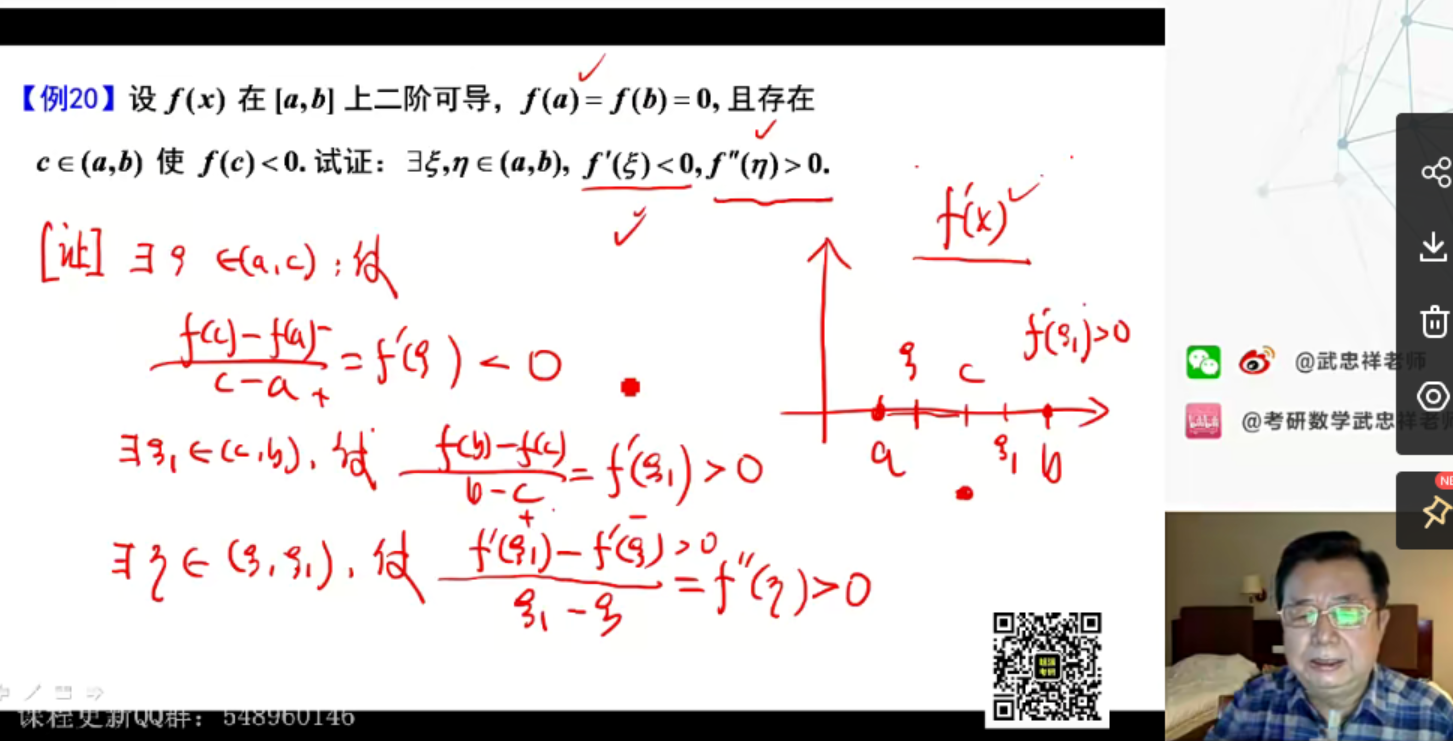 【例20】设 f(x) 在 [a,b] 上二阶可导，f(a)=f(b)=0, 且存在
c∈(a,b) 使 f(c)<0. 试证：∃ξ,η∈(a,b), f'(ξ)<0, f''(η)>0.
[证] ∃ξ∈(a,c), 使
f(c)-f(a)
c-a
=f'(ξ)<0
∃ξ₁∈(c,b), 使
f(b)-f(c)
b-c
=f'(ξ₁)>0
∃η∈(ξ,ξ₁), 使
f'(ξ₁)-f'(ξ)>0
ξ₁-ξ
=f''(η)>0
f'(x)
f'(ξ₁)>0
ξ c
a ξ₁ b
@武忠祥老师
@考研数学武忠祥老师
NE
课程更新QQ群：548960146